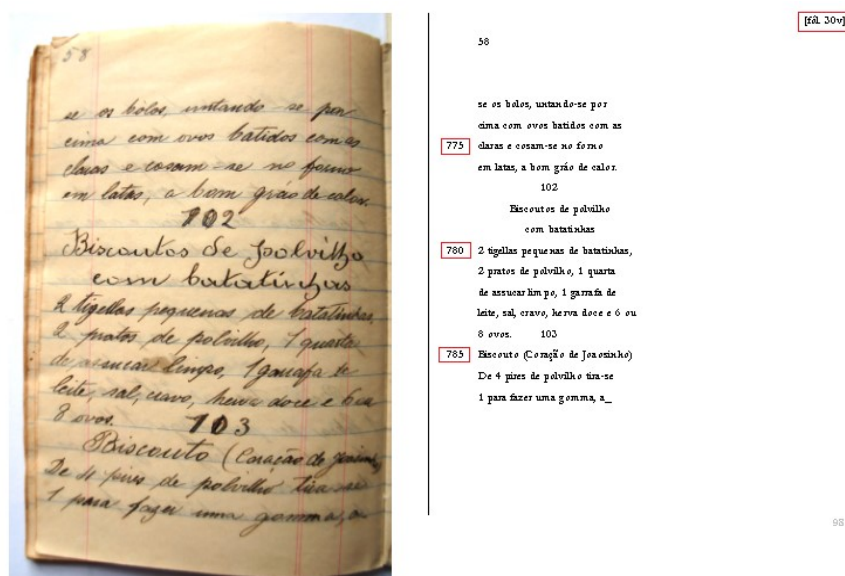 58
se os bolos, untando-se por
cima com ovos batidos com as
claras e cosam-se no forno
em latas, a bom gráo de calor.
102
Biscoutos de polvilho
com batatinhas
2 tigellas pequenas de batatinhas,
2 pratos de polvilho, 1 quarta
de assucar limpo, 1 garrafa de
leite, sal, cravo, herva doce e 6 ou
8 ovos. 103
Biscouto (Coração de Joaosinho)
De 4 pires de polvilho tira-se
1 para fazer uma gomma, a
[fól. 30v]
58
se os bolos, untando-se por
cima com ovos batidos com as
775 claras e cosam-se no forno
em latas, a bom gráo de calor.
102
Biscoutos de polvilho
com batatinhas
780 2 tigellas pequenas de batatinhas,
2 pratos de polvilho, 1 quarta
de assucar limpo, 1 garrafa de
leite, sal, cravo, herva doce e 6 ou
8 ovos. 103
785 Biscouto (Coração de Joaosinho)
De 4 pires de polvilho tira-se
1 para fazer uma gomma, a_
98